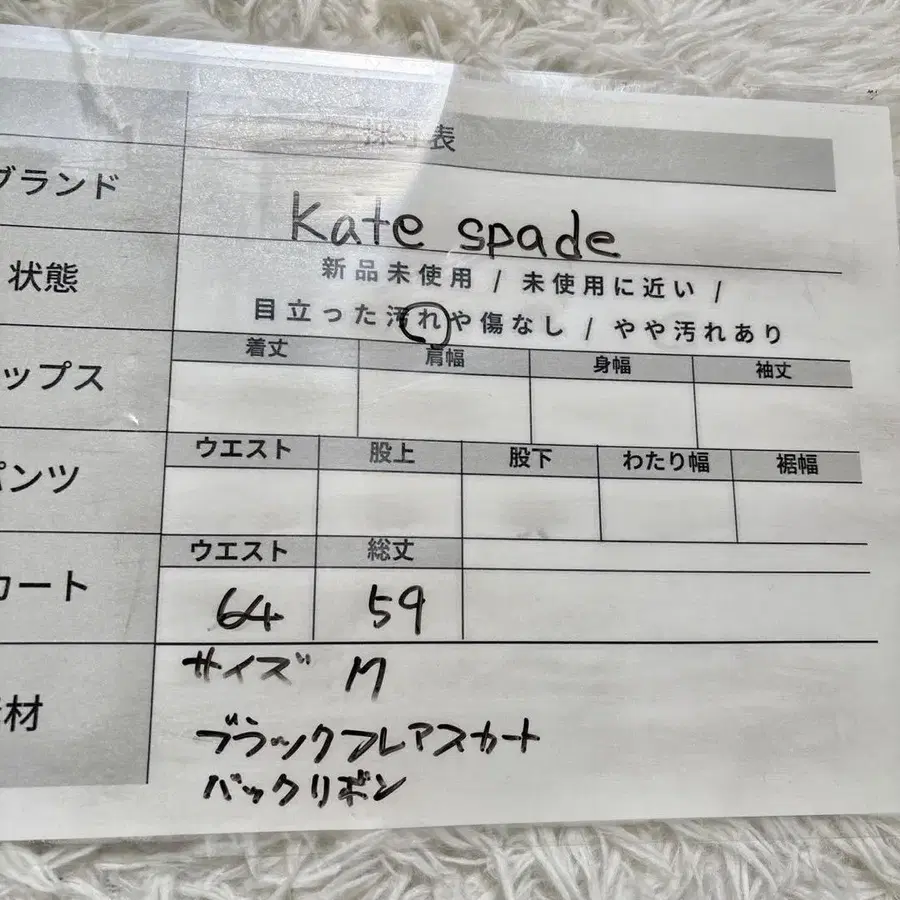 採寸表
ブランド
kate spade
状態
新品未使用 / 未使用に近い /
目立った汚れや傷なし / やや汚れあり
ップス
着丈 肩幅 身幅 袖丈
パンツ
ウエスト 股上 股下 わたり幅 裾幅
カート
ウエスト 総丈
64 59
材
サイズ M
ブラックフレアスカート
バックリボン